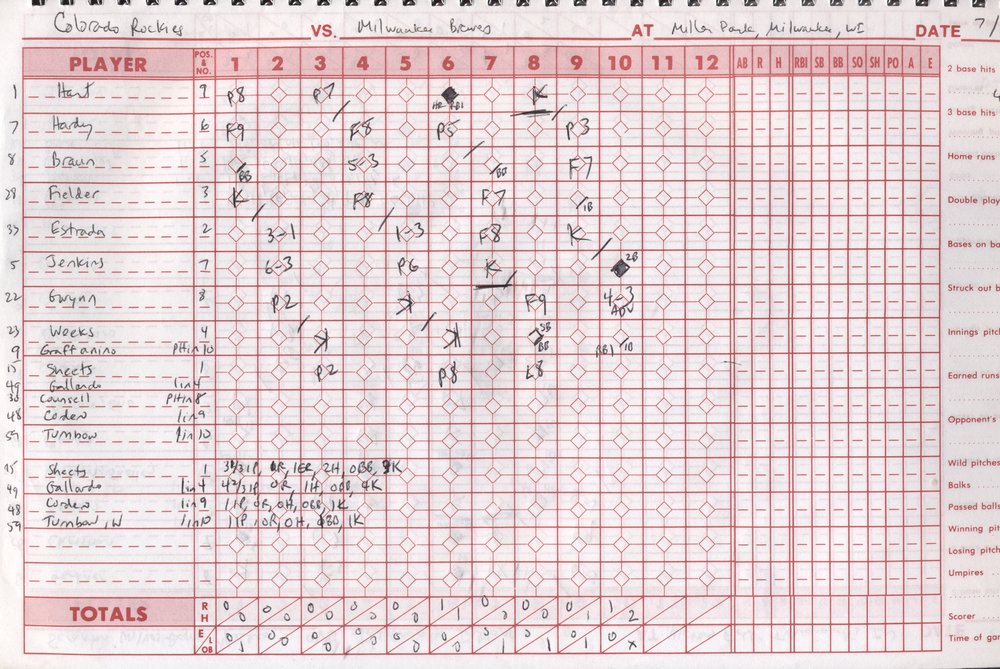 Colorado Rockies VS. Milwaukee Brewers AT Miller Park, Milwaukee, WI DATE 7/
PLAYER POS. & NO. 1 2 3 4 5 6 7 8 9 10 11 12 AB R H RBI SB BB SO SH PO A E
2 base hits
1 Hart 9 P8 F7 HR RBI K
3 base hits
7 Hardy 6 F9 F8 P5 P3
8 Braun 5 BB 5-3 BB F7
Home runs
28 Fielder 3 K F8 F7 1B
Double play
33 Estrada 2 3-1 1-3 F8 K
Bases on ba
5 Jenkins 7 6-3 P6 K 2B
Struck out b
22 Gwynn 8 P2 K F9 4-3 ADV
23 Weeks 4 K K SB BB
Innings pitc
9 Graffanino PH in 10 RBI 1B
15 Sheets 1 P2 P8 F8
Earned runs
49 Gallardo 1 in 4
30 Counsell PH in 8
48 Cordero 1 in 9
Opponent's
59 Turnbow 1 in 10
15 Sheets 1 3 1/3 IP, 1R, 1ER, 2H, 0BB, 3K
Wild pitches
49 Gallardo 1 in 4 4 2/3 IP, 0R, 1H, 0BB, 4K
Balks
48 Cordero 1 in 9 1 IP, 0R, 0H, 0BB, 1K
Passed balls
59 Turnbow, W 1 in 10 1 IP, 0R, 0H, 0BB, 1K
Winning pit
Losing pitch
Umpires
TOTALS R H 0 0 0 0 0 0 0 0 0 0 1 1 0 0 0 0 0 1 1 2
Scorer
E LOB 0 1 0 0 0 0 0 0 0 0 0 0 0 1 0 1 0 1 0 x
Time of gam